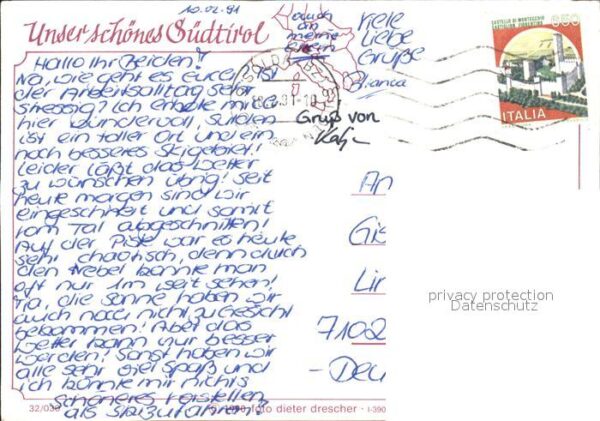 10.02.91
Unser schönes Südtirol
auch
an
meine
Eltern
Viele
liebe
Grüße
Bianca
Gruß von
Hallo Ihr Beiden!
Na, wie geht es euch? Ist
der Arbeitsalltag sehr
stressig? Ich erhole mich
hier wundervoll, Sulden
ist ein toller Ort und ein
noch besseres Skigebiet!
Leider läßt das Wetter
zu wünschen übrig! Seit
heute morgen sind wir
eingeschneit und somit
vom Tal abgeschnitten!
Auf der Piste war es heute
sehr chaotisch, denn durch
den Nebel konnte man
oft nur 1m weit sehen!
Na, die Sonne haben wir
auch noch nicht zu Gesicht
bekommen! Aber das
Wetter kann nur besser
werden! Sonst haben wir
alle sehr viel Spaß und
ich könnte mir nichts
Schöneres vorstellen
als Skizufahren!
CASTELLO DI MONTECCHIO
CASTIGLION FIORENTINO
650
ITALIA
An
Gis
Lin
7102
- Deu
privacy protection
Datenschutz
32/030
© 1990 foto dieter drescher · I-390